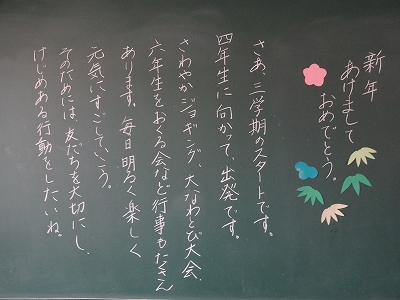 新年
あけまして
おめでとう。
さあ、三学期のスタートです。
四年生に向かって、出発です。
さわやかジョギング、大なわとび大会、
六年生をおくる会など行事もたくさん
あります。毎日明るく楽しく
元気にすごしていこう。
そのためには、友だちを大切にし、
けじめある行動をしたいね。